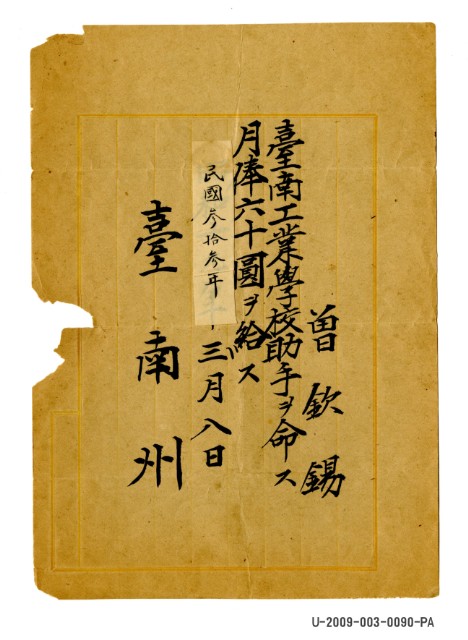 曽欽錫
臺南工業學校助手ヲ命ス
月俸六十圓ヲ給ス
民國參拾參年三月八日
臺南州
U-2009-003-0090-PA